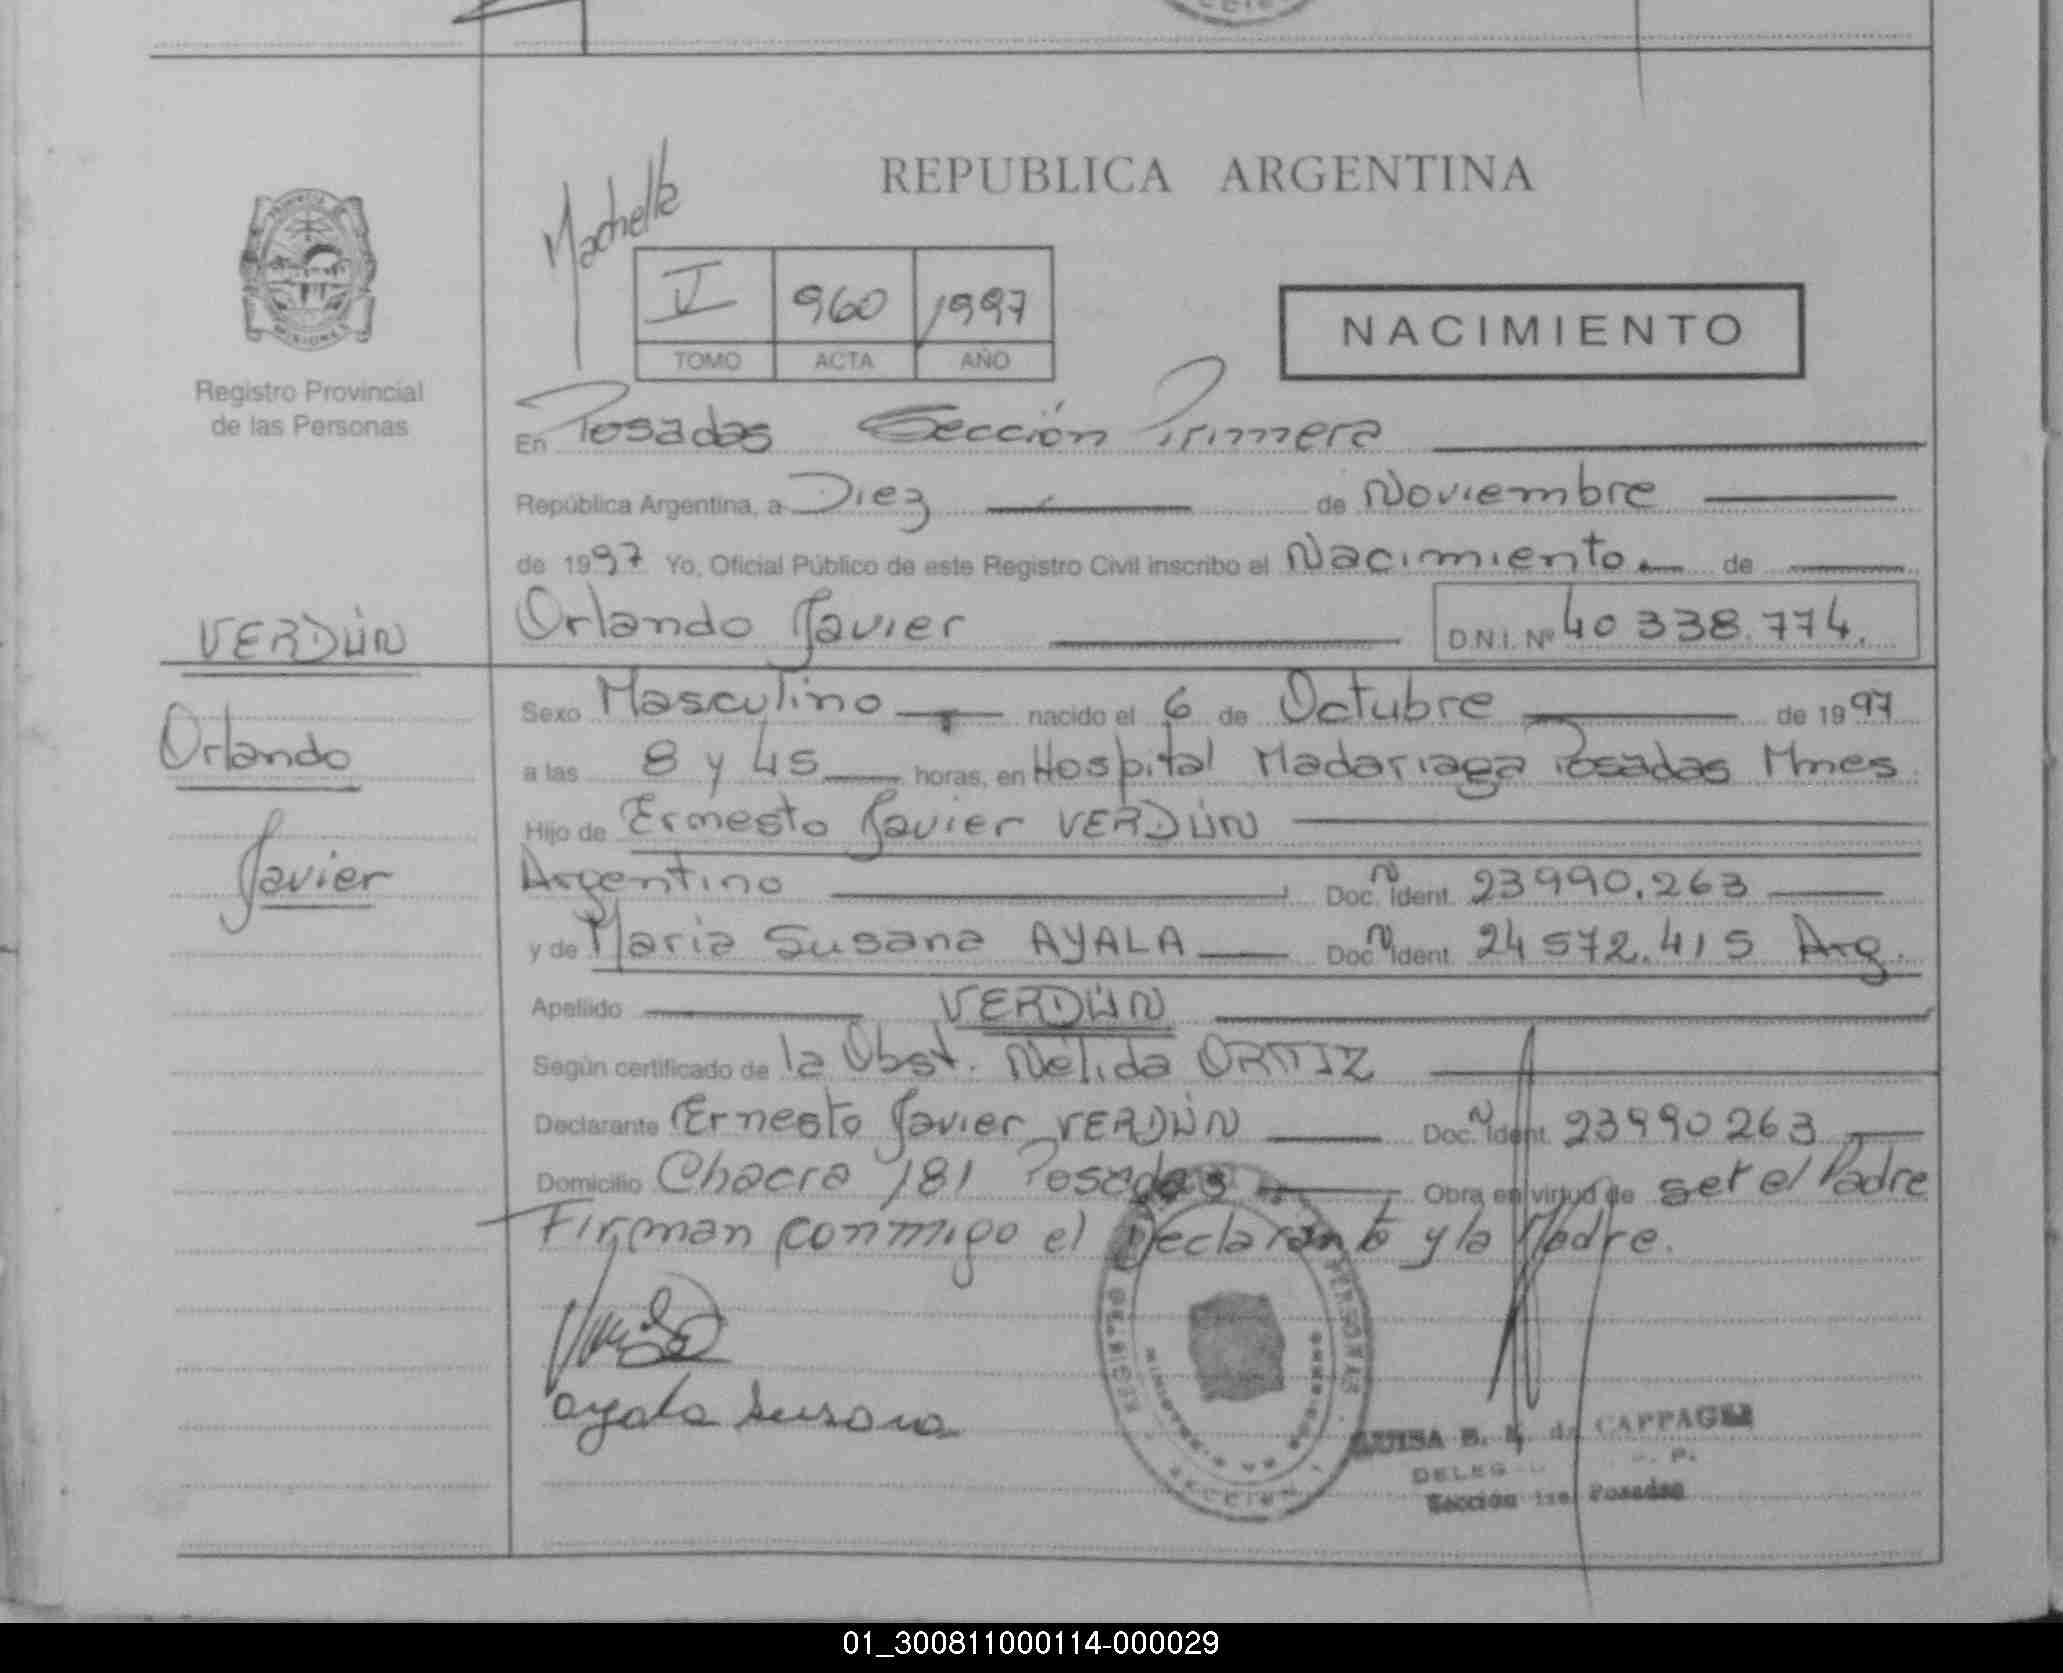 REPUBLICA ARGENTINA
V 960 1997
TOMO ACTA AÑO
NACIMIENTO
Registro Provincial
de las Personas
En Posadas Sección Primera
República Argentina, a Diez de Noviembre
de 1997 Yo, Oficial Público de este Registro Civil inscribo el Nacimiento de
Orlando Javier D.N.I. Nº 40 338.774.
VERDÚN
Orlando
Javier
Sexo Masculino nacido el 6 de Octubre de 1997
a las 8 y 45 horas, en Hospital Madariaga Posadas Mnes
Hijo de Ernesto Javier VERDÚN
Argentino Doc. Ident. 23990.263
y de Maria Susana AYALA Doc. Ident. 24 572.415 Arg.
Apellido VERDÚN
Según certificado de la Obst. Nélida ORTIZ
Declarante Ernesto Javier VERDÚN Doc. Ident. 23990263
Domicilio Chacra 181 Posadas Obra en virtud de ser el Padre
Firman conmigo el Declarante y la Madre.
ayala susana
CAPPAG
DELEG
Sección 1ra. Posadas
01_300811000114-000029